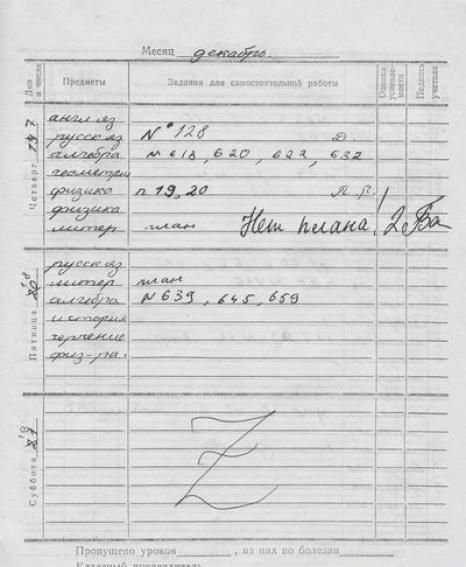 Месяц декабрь
Дни и числа Предметы Задания для самостоятельной работы Оценка успеваемости Подпись учителя
Четверг
англ яз
русск яз № 128
алгебра № 618, 620, 622, 632
геометрия
физика п 19, 20 Л.Р.
физика
литер план Нет плана! 2
Пятница
русск яз
литер план
алгебра № 639, 645, 659
история
черчение
физ-ра.
Суббота
Z
Пропущено уроков , из них по болезни
Классный руководитель